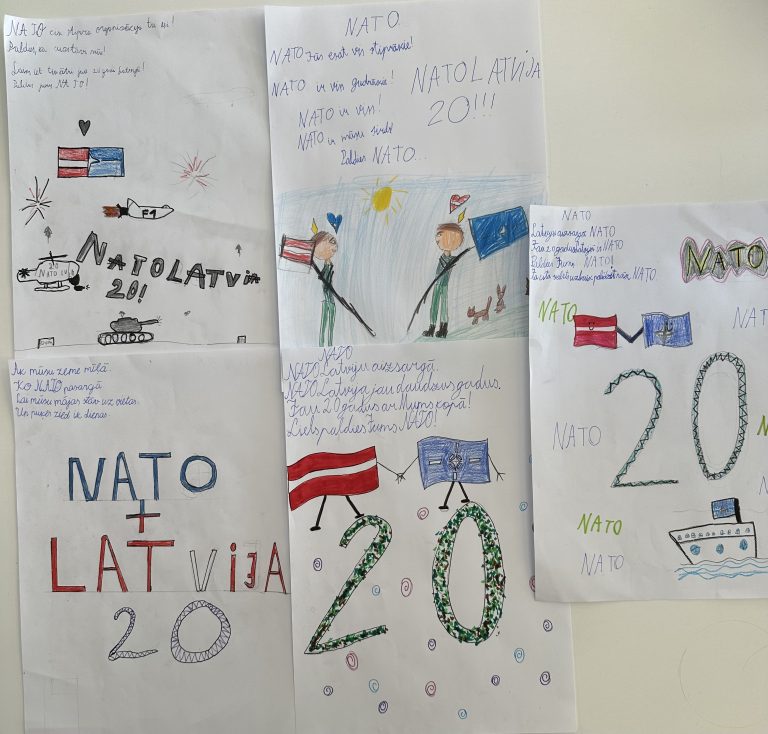 NATO cik stipra organizācija tu esi!
Paldies, ka
gadi
Paldies jums NATO!
F1
20 NATO LV
NATO LATVIJA
20!
NATO
NATO Jūs esat vis stiprākie!
NATO ir vis gudrākie!
NATO ir viss!
NATO ir mūsu sirds!
Paldies NATO...
NATO LATVIJA
20!!!
NATO
Latviju aizsargā NATO
Jau 20 gadus Latvijā ir NATO
Paldies Jums NATO!
NATO
NATO
NATO
NAT
20
NATO
NATO
NATO
Ak mūsu zeme mīļā.
Ko NATO pasargā
Lai mūsu mājas stāv uz vietas.
Un puķes zied ik dienas.
NATO
+
LATVIJA
20
NATO
NATO Latviju aizsargā.
NATO Latvijā jau daudzus gadus.
Jau 20 gadus ar Mums kopā!
Liels paldies Jums NATO!
20